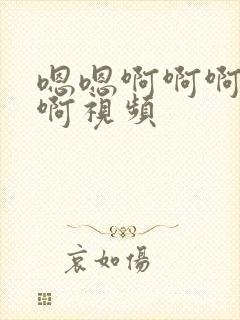 嗯嗯啊啊啊
啊視頻
哀如傷